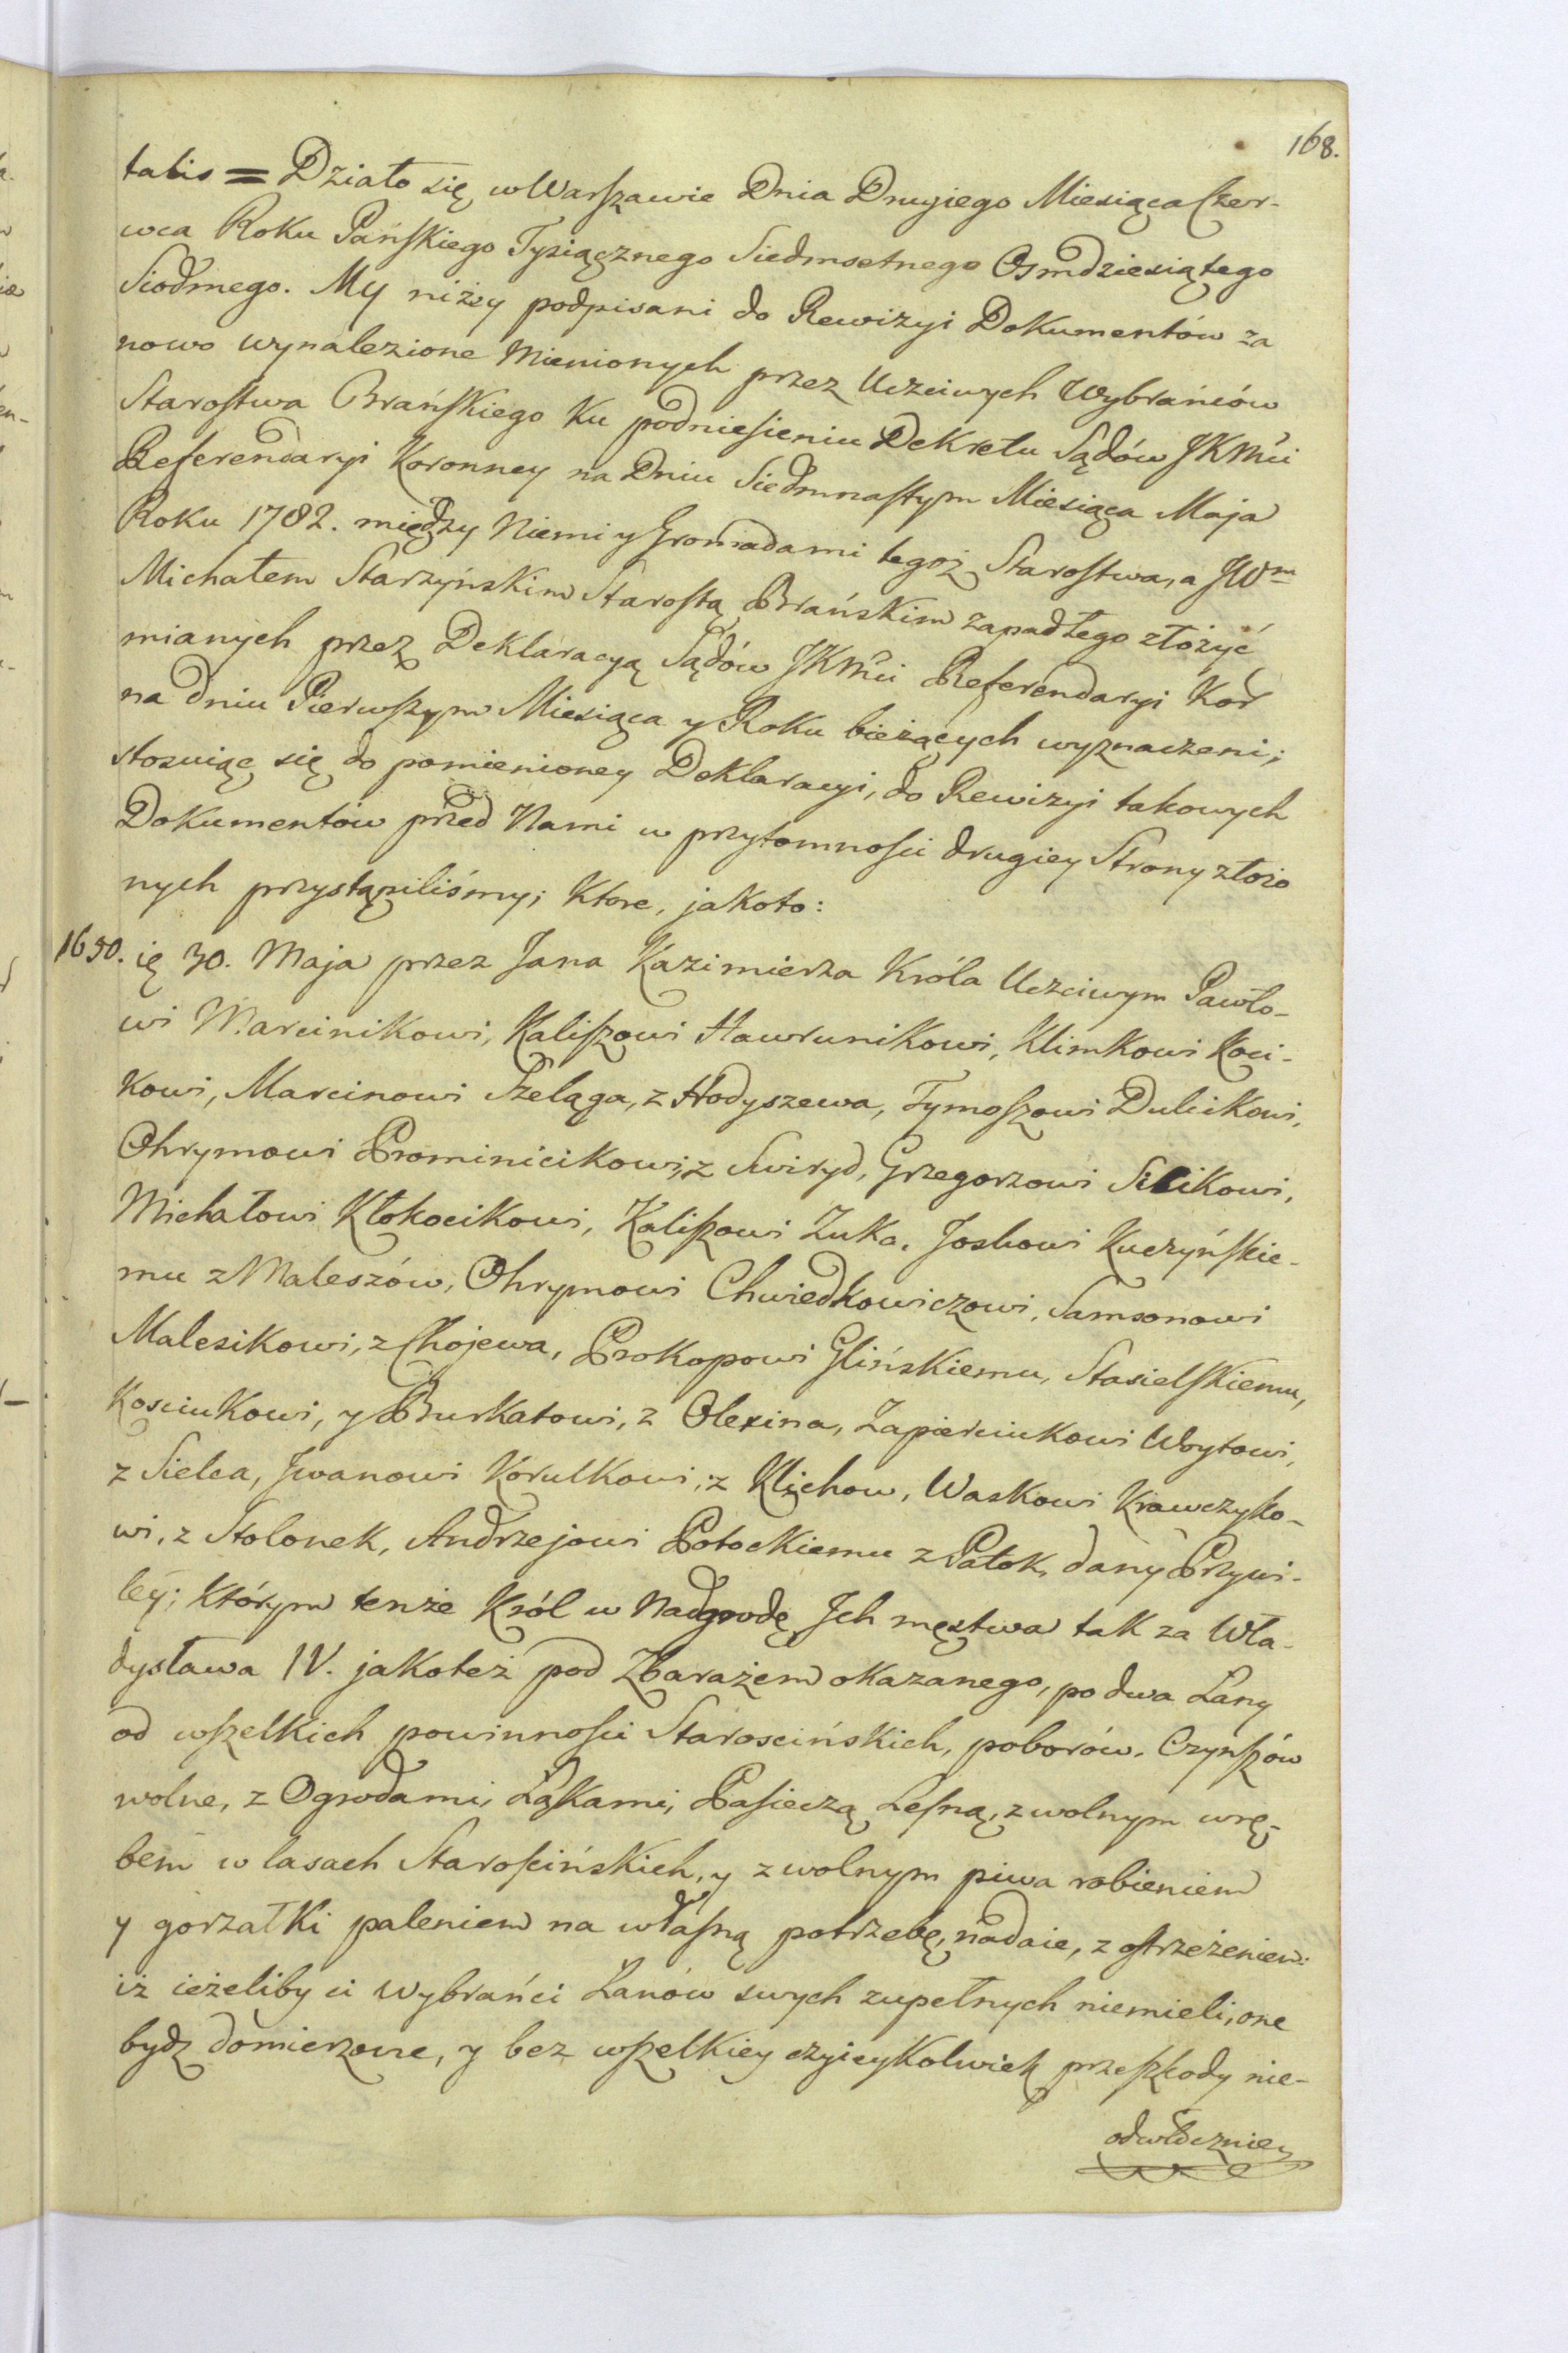 168.
talis = Działo się w Warszawie Dnia Drugiego Miesiąca Czer-
wca Roku Pańskiego Tysiącznego Siedmsetnego Osmdziesiątego
Siodmego. My niżey podpisani do Rewizyi Dokumentów za
nowo wynalezione Mienionych przez Uczciwych Wybrańców
Starostwa Brańskiego Ku podniesieniu Dekretu Sądów JKMci
Referendaryi Koronney na Dniu Siedmnastym Miesiąca Maja
Roku 1782. między Niemi y Gromadami tegoż Starostwa, a JWm
Michałem Starzyńskim Starostą Brańskim zapadłego złożyć
mianych przez Deklaracyą Sądów JKMci Referendaryi Kor
na dniu Pierwszym Miesiąca y Roku bieżących wyznaczeni;
stosuiąc się do pomienioney Deklaracyi, do Rewizyi takowych
Dokumentów przed Nami w przytomności drugiey Strony złożo
nych przystąpiliśmy; Ktore, jakoto:
1650. ię 30. Maja przez Jana Kazimierza Króla Uczciwym Pawło-
wi Marcinikowi, Kaliszowi Hawrunikowi, Klimkowi Koci-
kowi, Marcinowi Szeląga, z Hodyszewa, Tymoszowi Dulcikowi,
Ohrymowi Prominicikowi, z Swiryd, Grzegorzowi Silikowi,
Michałowi Kłokocikowi, Kaliszowi Zuka, Joskowi Kuczyńskie-
mu z Maleszów, Ohrymowi Chwiedkowiczowi, Samsonowi
Malesikowi, z Chojewa, Prokopowi Glińskiemu, Stasielskiemu,
Kosciukowi, y Burkatowi, z Olexina, Zapierciukowi Woytowi,
z Sielca, Jwanowi Korulkowi, z Klichow, Waskowi Krawczyko-
wi, z Stolonek, Andrzejowi Potockiemu z Patok, dany Przywi-
ley; Którym tenże Król w Nadgrodę Jch męstwa tak za Wła-
dysława IV. jakoteż pod Zbarażem okazanego, po dwa Łany
od wszelkich powinności Staroscińskich, poborów, Czynszów
wolne, z Ogrodami, Łąkami, Pasieczą Leśną, z wolnym wrę-
bem w lasach Starościńskich, y z wolnym piwa robieniem
y gorzałki paleniem na własną potrzebę, nadaie, z ostrzeżeniem:
iż ieżeliby ci Wybrańci Łanów swych zupełnych niemieli, one
bydz domierzone, y bez wszelkiey czyieykolwiek przeszkody nie-
odwłoczniey